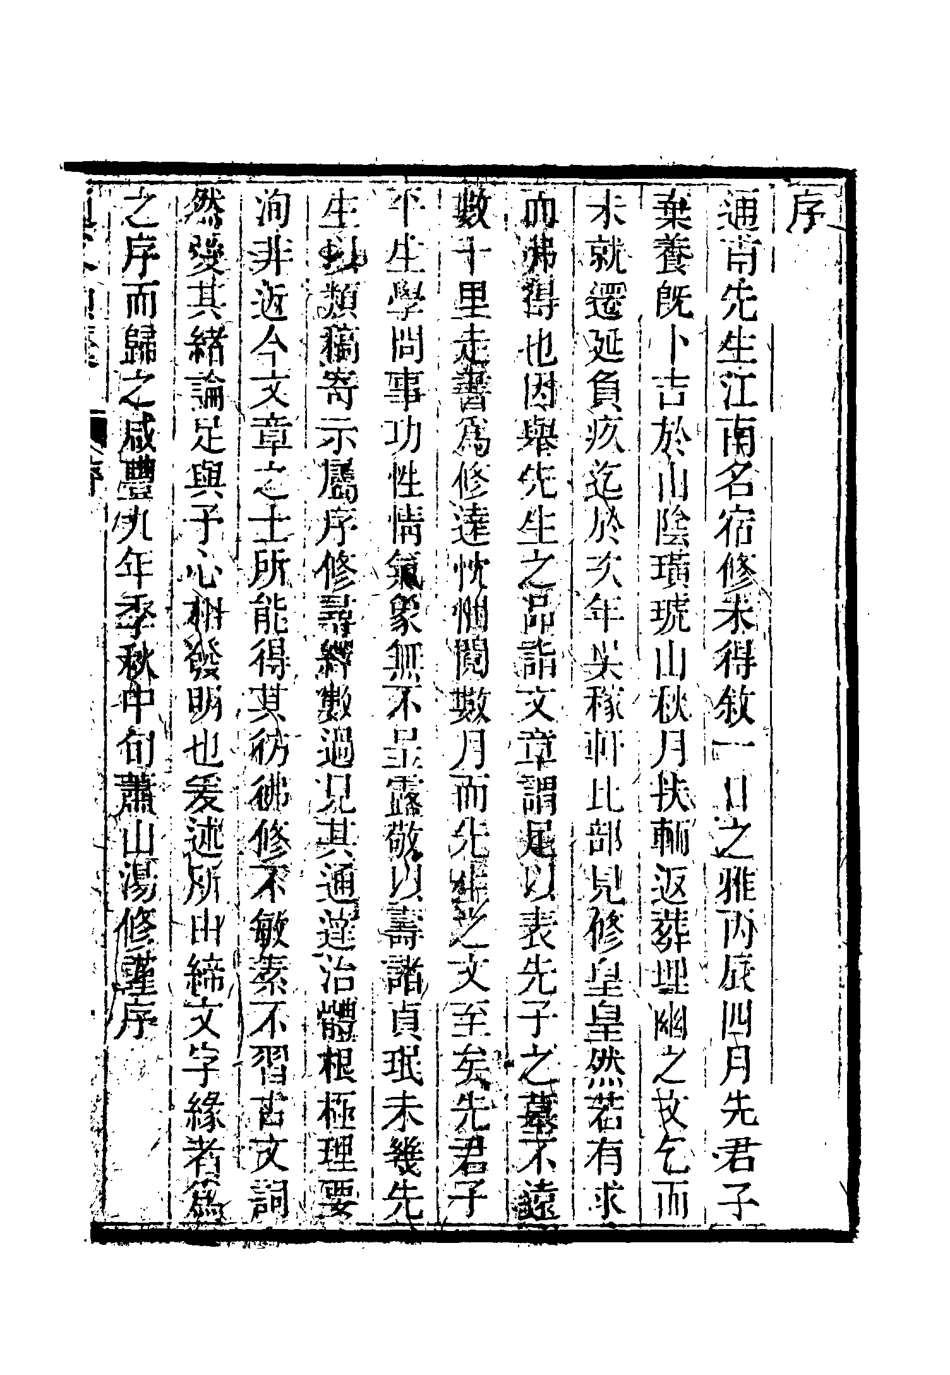 序
通甫先生江南名宿修未得敘一日之雅丙辰四月先君子
棄養旣卜吉於山陰璜琥山秋月扶輀返葬埋幽之文乞而
未就遷延負疚迄於次年吳稼軒比部見修皇皇然若有求
而弗得也因舉先生之品詣文章謂足以表先子之墓不遠
數十里走書爲修達忱悃閱數月而先生之文至矣先君子
平生學問事功性情氣象無不呈露敬以壽諸貞珉未幾先
生以類稿寄示屬序修尋繹數過見其通達治體根極理要
洵非近今文章之士所能得其彷彿修不敏素不習古文詞
然發其緒論足與予心相發明也爰述所由締文字緣者爲
之序而歸之咸豐九年季秋中旬蕭山湯修謹序
序